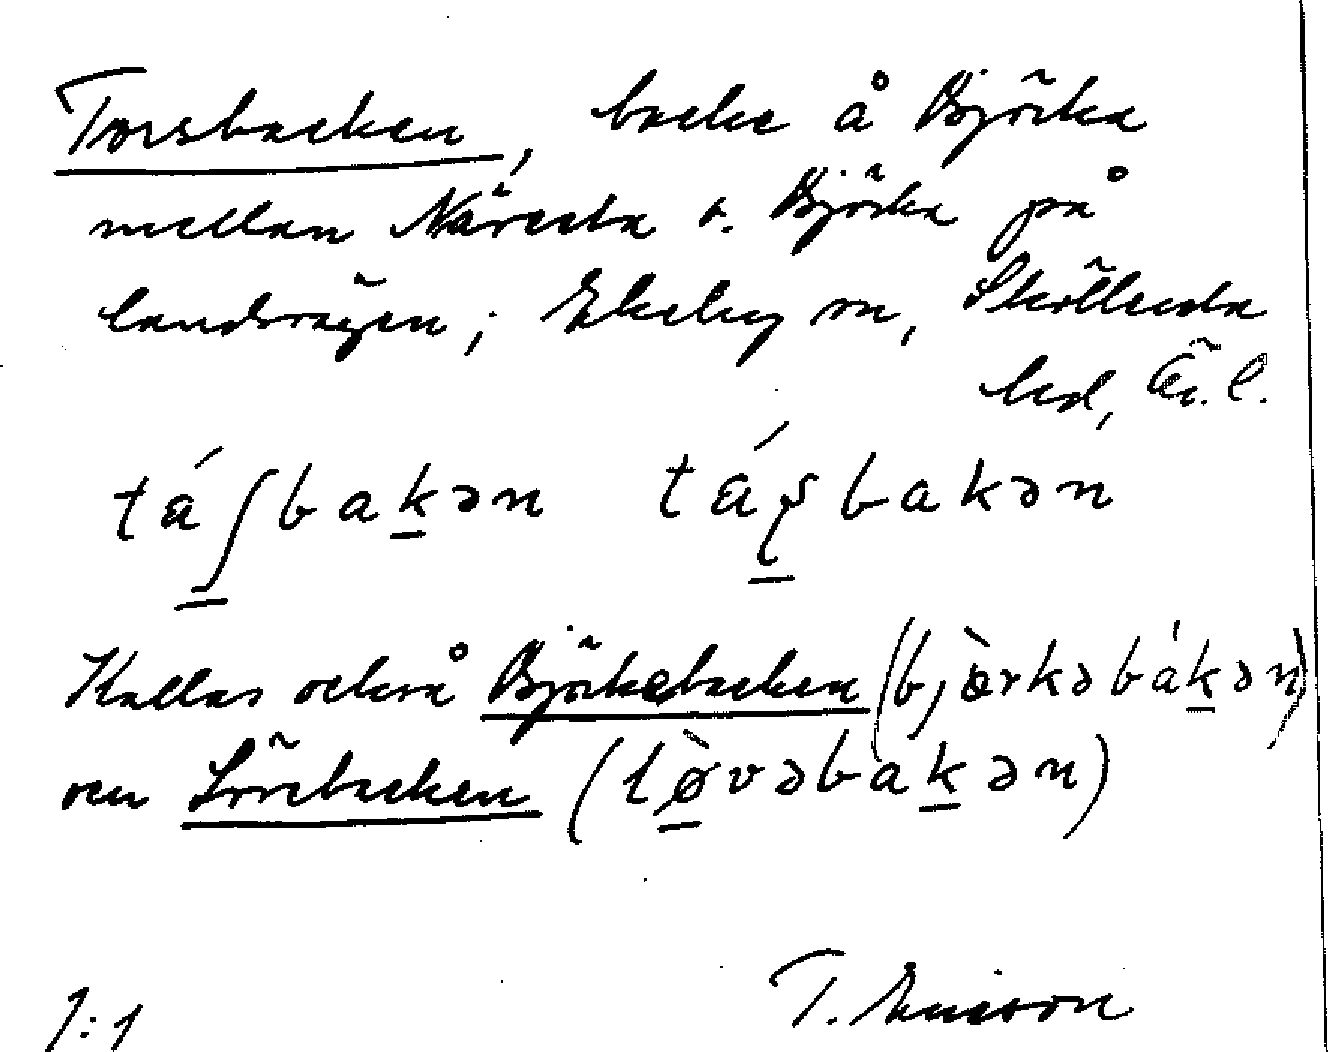 Torsbacken, backe å Björka
mellan Näresta o. Björka på
landsvägen; Ekeby sn, Sköllersta
hd, Ör. l.
táʃbakən táʂbakən
Kallas också Björkebacken (bjæ̀rkəbákən)
och Lövebacken (lø̀vəbakən)
J:1
T. Ericson